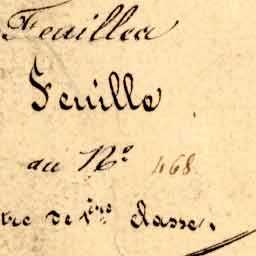 Feuillea
Feuille
au Nº 468
tre de 1ère classe.